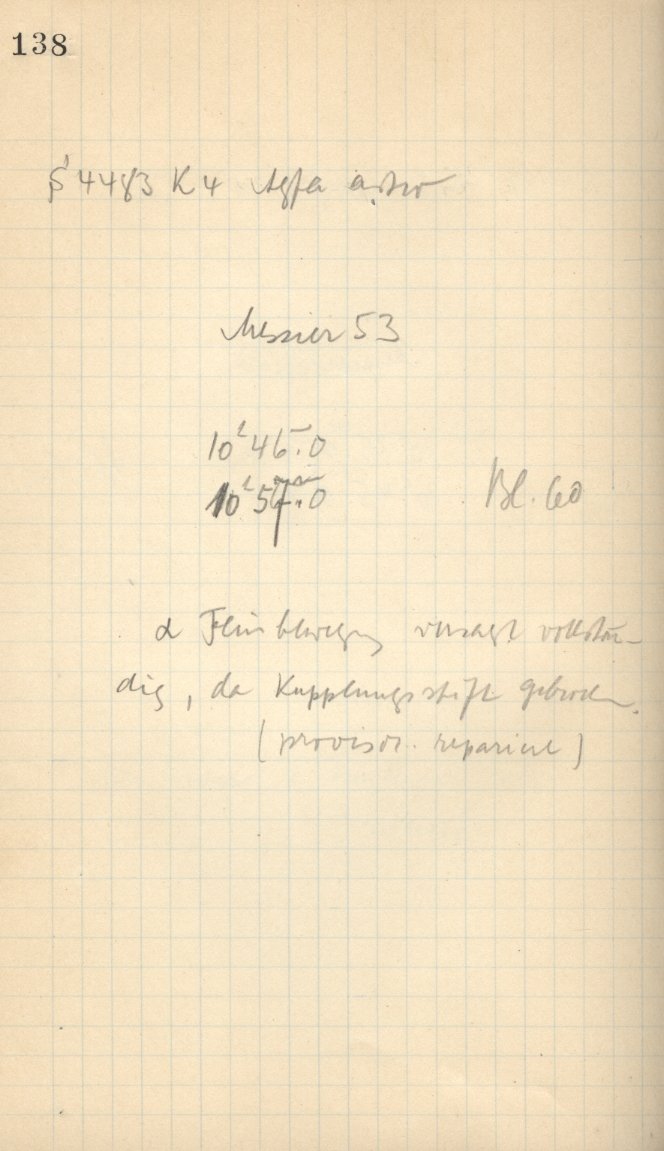 138
S 4483 K4 Agfa astro
Messier 53
10h 46m.0
10h 57m.0 Bl. 60
α Feinbewegung versagt vollstän-
dig, da Kupplungsstift gebrochen.
(provisor. repariert)